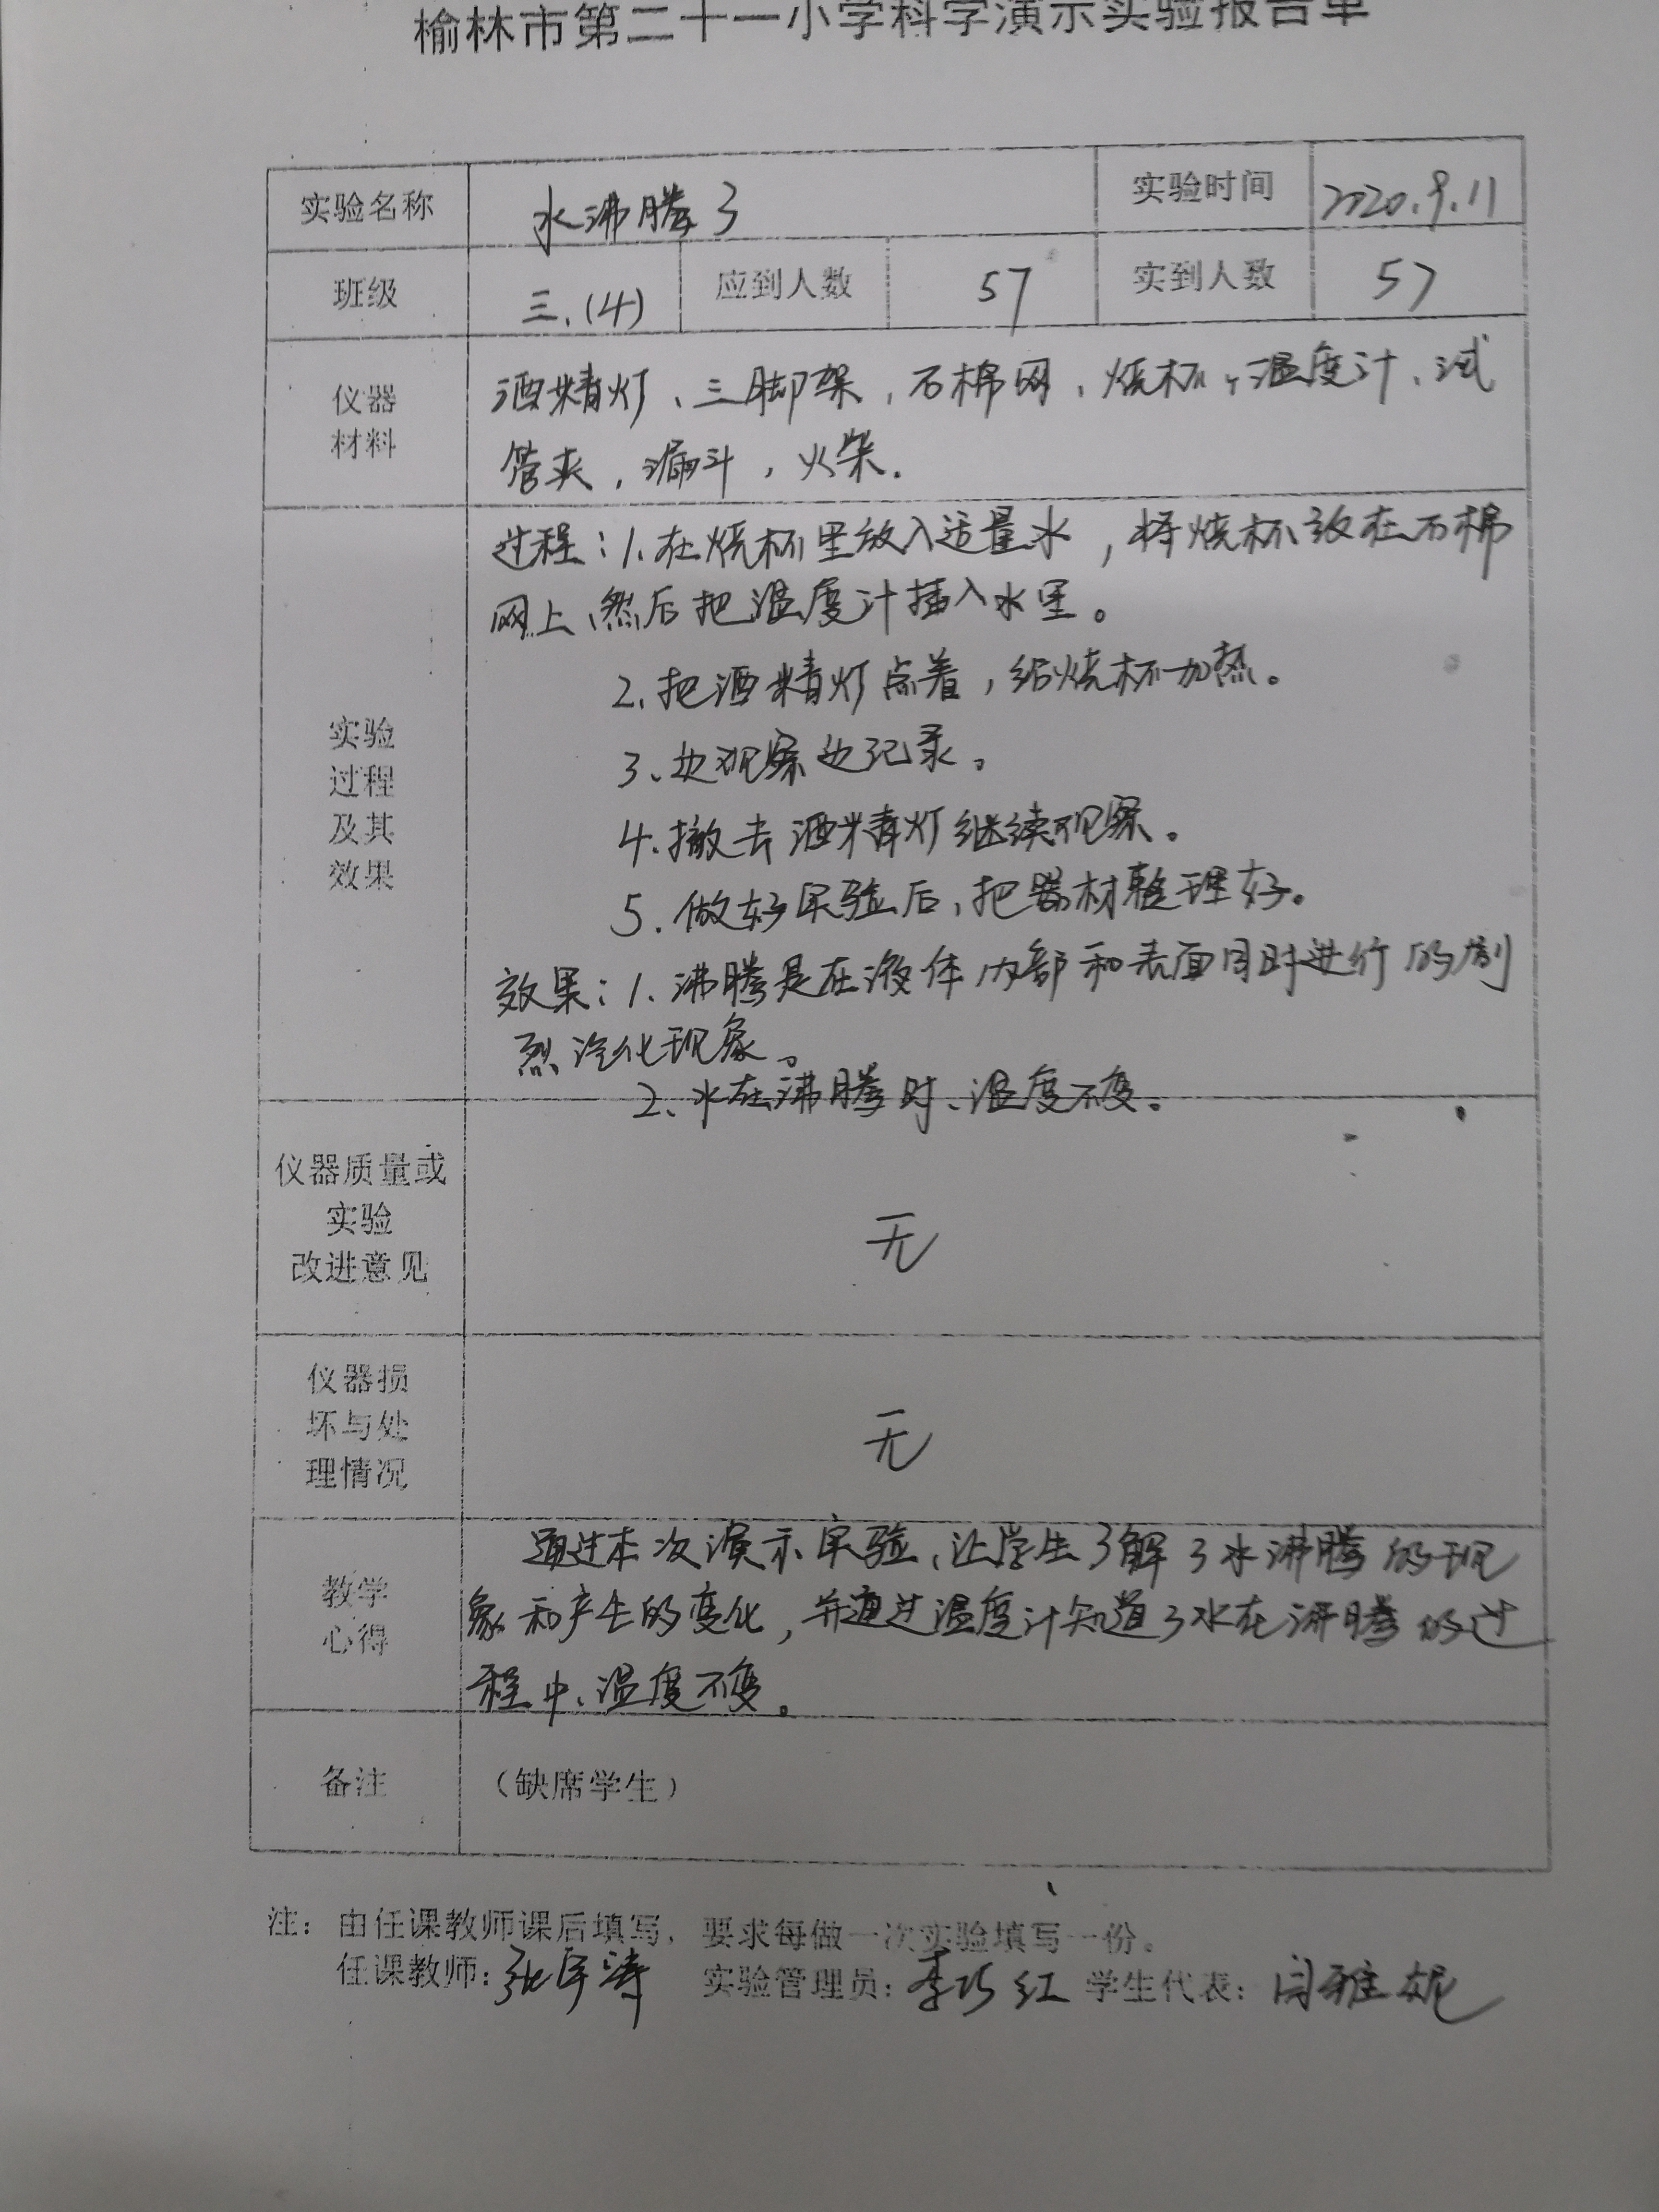 榆林市第二十一小学科学演示实验报告单
实验名称 水沸腾了 实验时间 2020.9.11
班级 三.(4) 应到人数 57 实到人数 57
仪器
材料
酒精灯、三脚架，石棉网、烧杯，温度计、试
管夹，漏斗，火柴.
实验
过程
及其
效果
过程：1.在烧杯里放入适量水，将烧杯放在石棉
网上、然后把温度计插入水里。
2.把酒精灯点着，给烧杯加热。
3、边观察边记录。
4.撤去酒精灯继续观察。
5.做好实验后，把器材整理好。
效果：1.沸腾是在液体内部和表面同时进行的剧
烈汽化现象。
2、水在沸腾时、温度不变。
仪器质量或
实验
改进意见
无
仪器损
坏与处
理情况
无
教学
心得
通过本次演示实验、让学生了解了水沸腾的现
象和产生的变化，并通过温度计知道了水在沸腾的过
程中、温度不变。
备注 （缺席学生）
注：由任课教师课后填写，要求每做一次实验填写一份。
任课教师：张 涛 实验管理员：李巧红 学生代表：闫雅妮